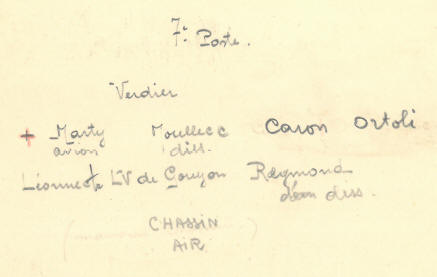 7e Poste.
Verdier
+ Marty Moullec Caron Ortoli
avion diss.
LV de Gouyon Raymond
diss.
CHASSIN
AIR